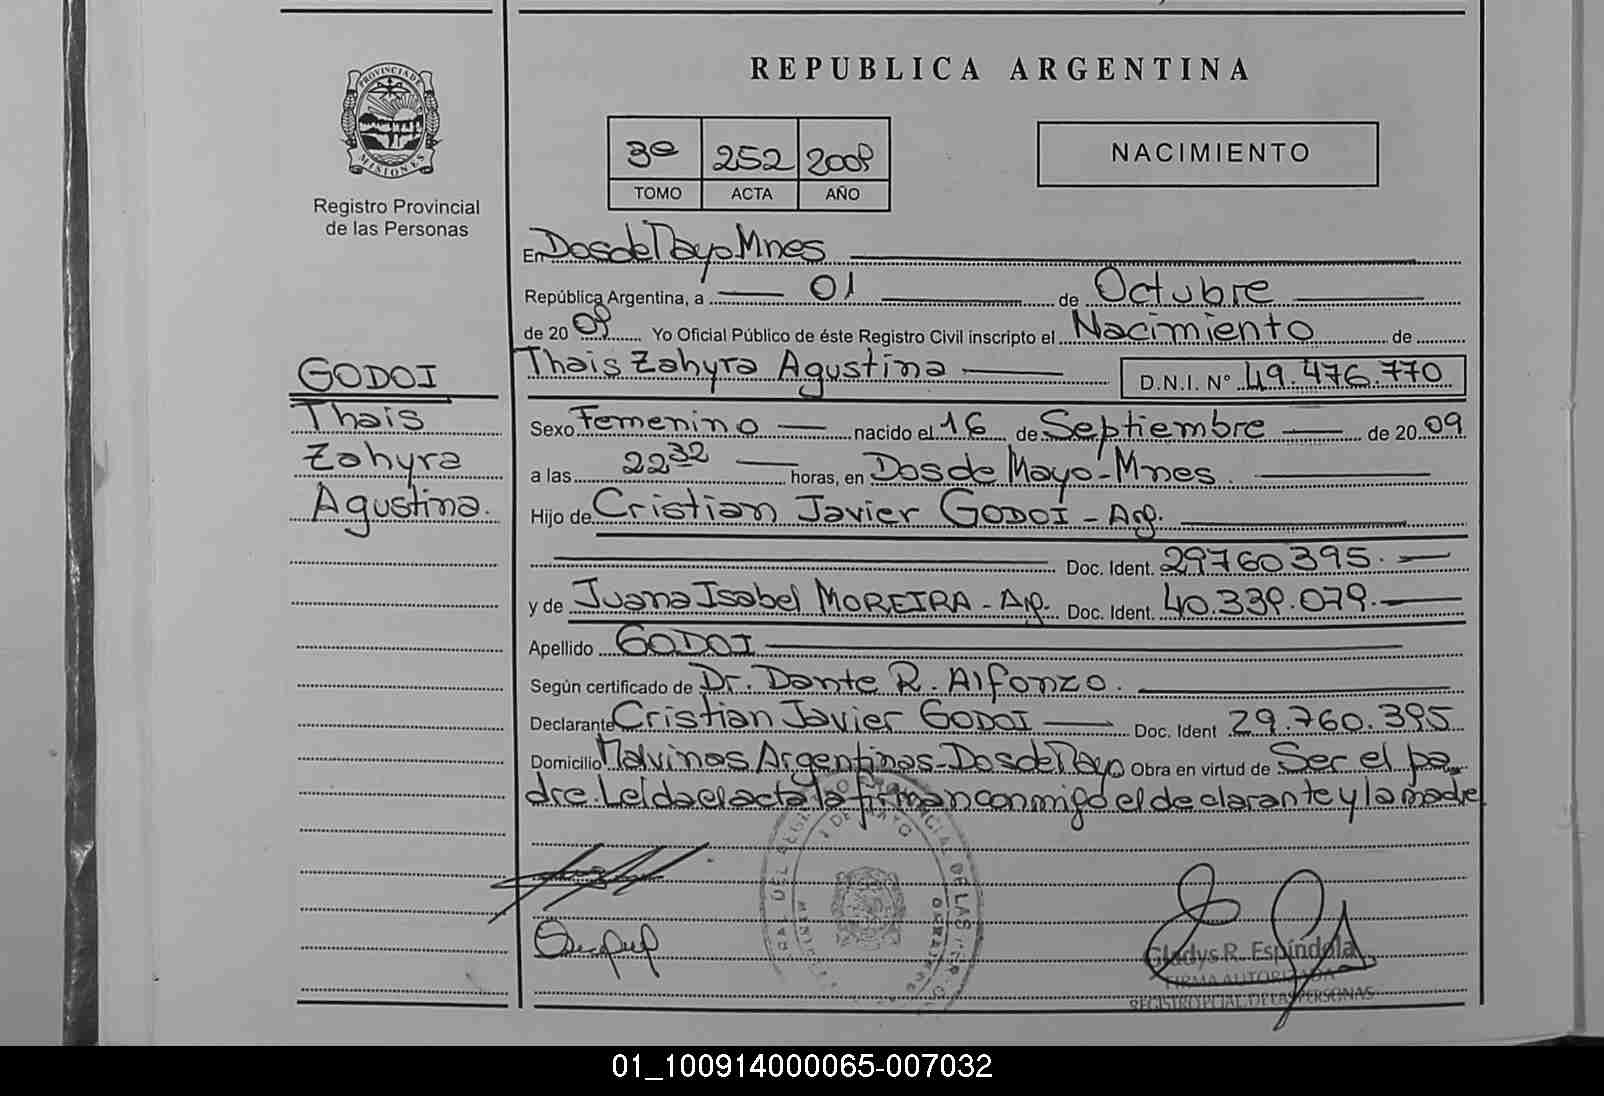 REPUBLICA ARGENTINA
PROVINCIA DE
MISIONES
Registro Provincial
de las Personas
3º 252 2009
TOMO ACTA AÑO
NACIMIENTO
En Dos de Mayo Mnes
República Argentina, a 01 de Octubre
de 20 09 Yo Oficial Público de éste Registro Civil inscripto el Nacimiento de
Thais Zahyra Agustina D.N.I. N° 49.476.770
GODOI
Thais
Zahyra
Agustina.
Sexo Femenino nacido el 16 de Septiembre de 20 09
a las 22 32 horas, en Dos de Mayo - Mnes.
Hijo de Cristian Javier GODOI - Arg.
Doc. Ident. 29760395.
y de Juana Isabel MOREIRA - Arg. Doc. Ident. 40.339.079.
Apellido GODOI
Según certificado de Dr. Dante R. Alfonzo.
Declarante Cristian Javier GODOI Doc. Ident 29.760.395
Domicilio Malvinas Argentinas - Dos de Mayo Obra en virtud de Ser el pa
dre. Leída el acta la firman conmigo el declarante y la madre
Gladys R. Espíndola
FIRMA AUTORIZADA
REGISTRO PCIAL. DE LAS PERSONAS
01_100914000065-007032